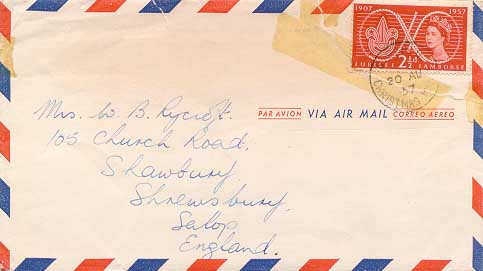 1907 1957
JUBILEE JAMBOREE
2½d
20 AU
57
CHRISTMAS
PAR AVION VIA AIR MAIL CORREO AEREO
Mrs. W. B. Rycroft.
105 Church Road.
Shawbury.
Shrewsbury.
Salop.
England.